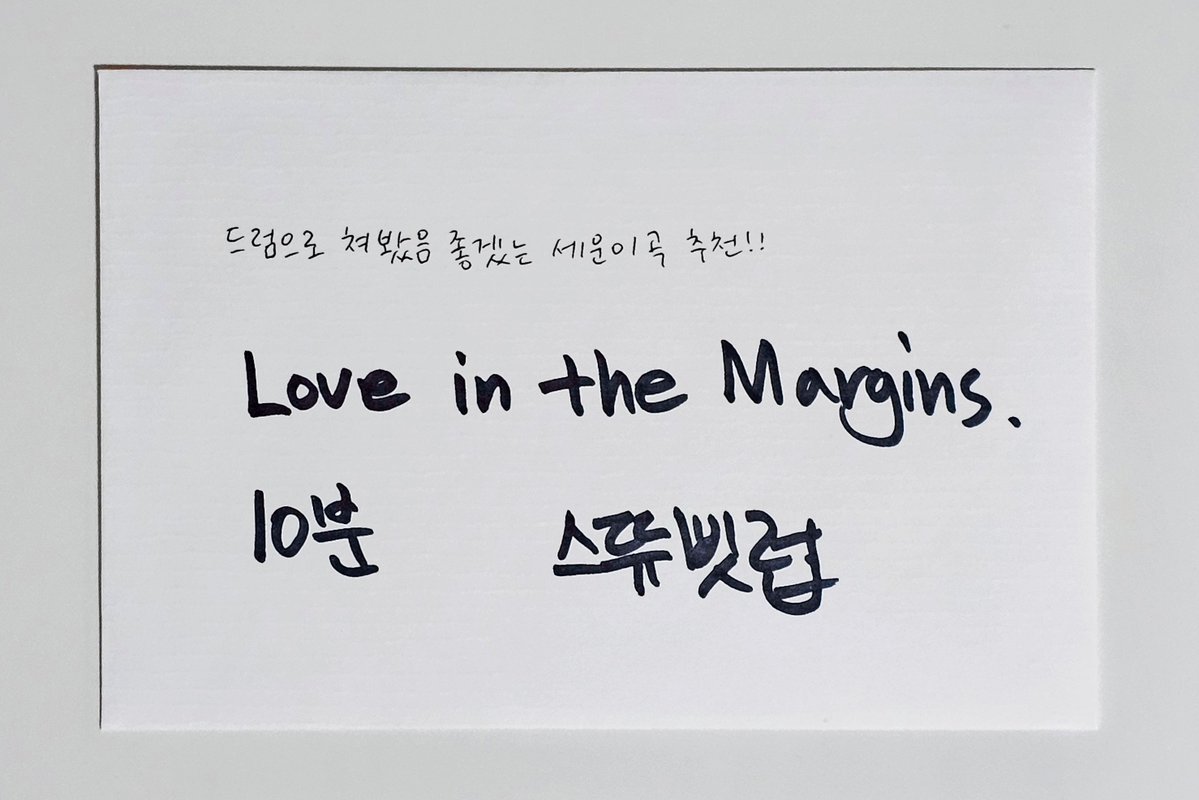 드럼으로 쳐봤음 좋겠는 세운이곡 추천!!
Love in the Margins.
10분 스뜌삣럽